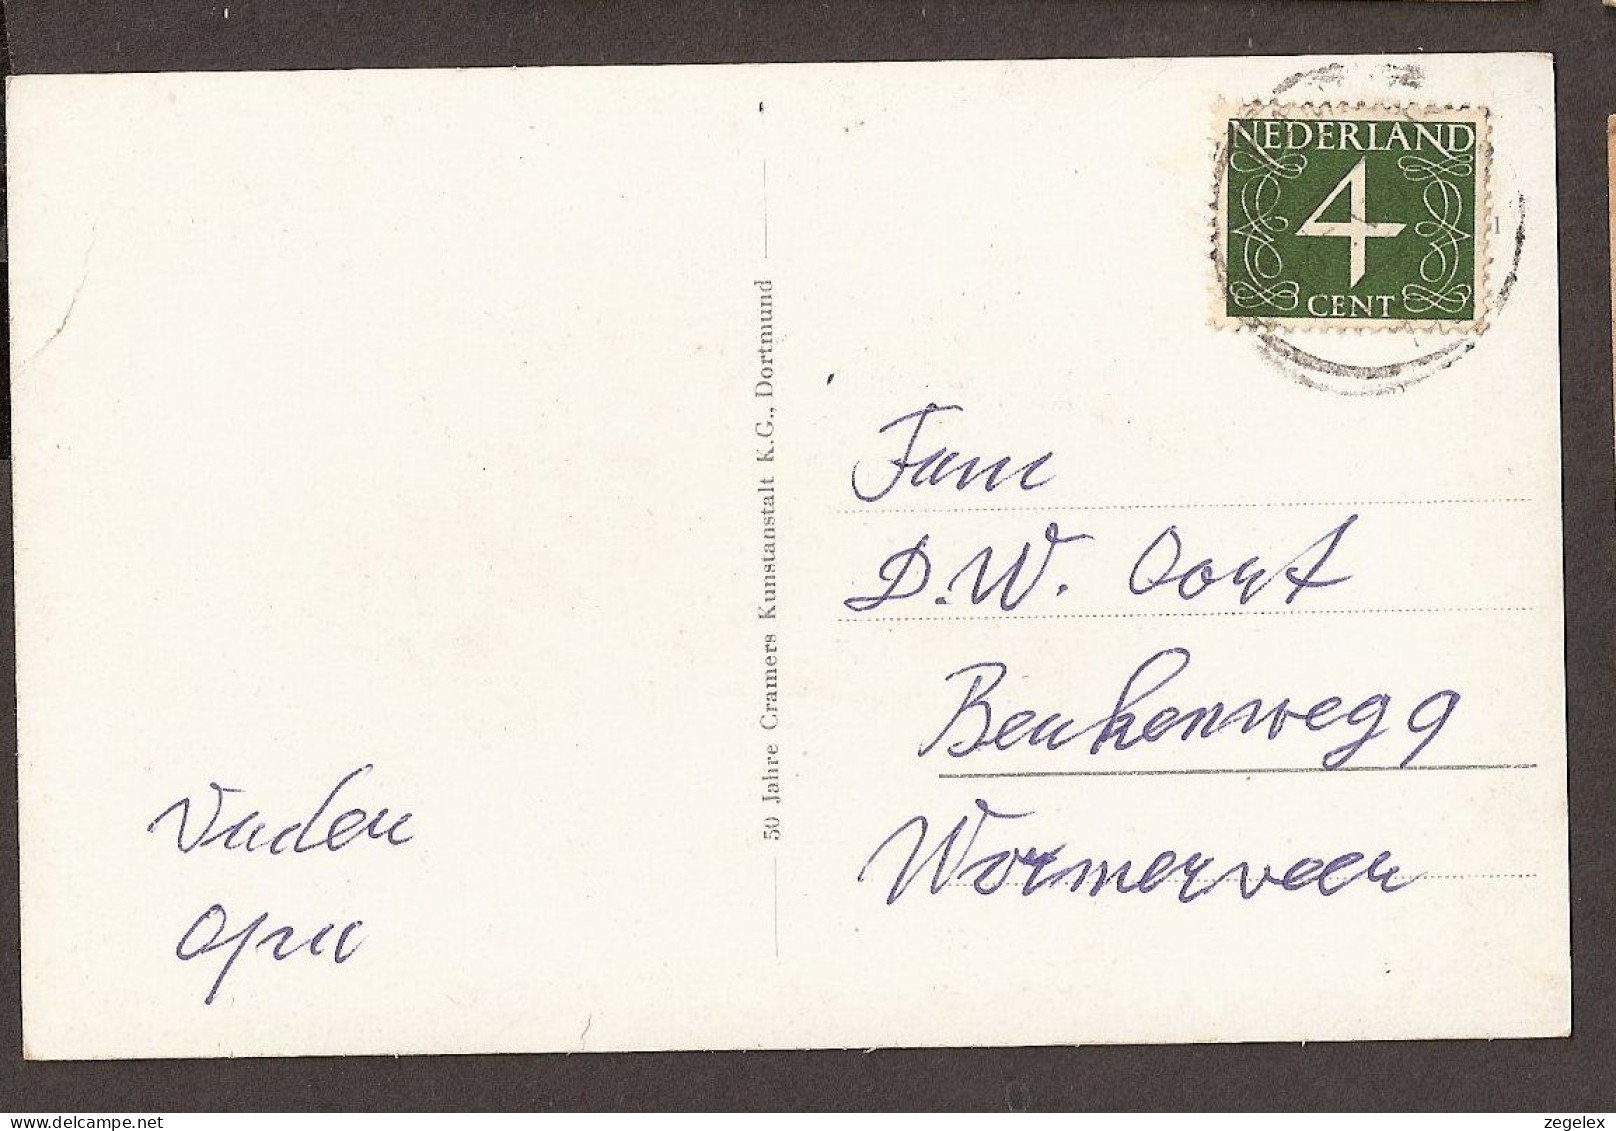 NEDERLAND
4
CENT
50 Jahre Cramers Kunstanstalt K.G., Dortmund
Fam
D.W. Oort
Beukenweg 9
Wormerveer
Vader
Opa
www.delcampe.net
zegelex